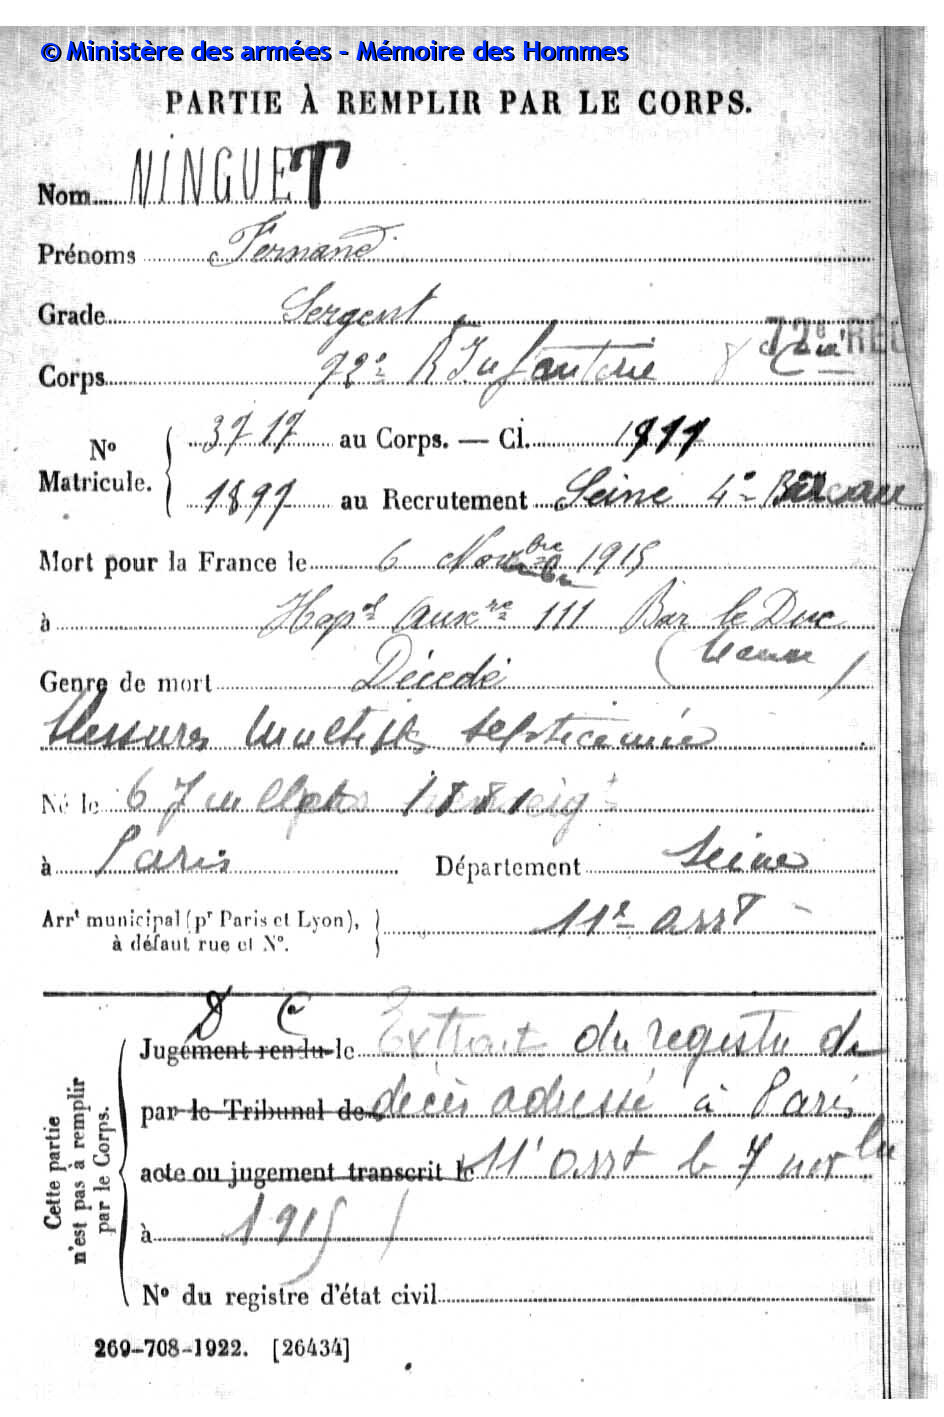 © Ministère des armées - Mémoire des Hommes
PARTIE À REMPLIR PAR LE CORPS.
Nom NINGUET
Prénoms Fernand
Grade Sergent
72e RÉG
Corps 72e R Infanterie 8e Cie
No Matricule. 3717 au Corps. — Cl. 1911
1897 au Recrutement Seine 4e Bureau
Mort pour la France le 6 Novbre 1915
à Hopal Auxre 111 Bar le Duc
(Meuse)
Genre de mort Décédé
blessures multiples septicémie
Né le 6 Juillet 1881
à Paris Département Seine
Arrt municipal (pr Paris et Lyon), à défaut rue et No. 11e arrt
D C
Jugement rendu le Extrait du registre de
par le Tribunal de décès adressé à Paris
acte ou jugement transcrit le 11e arrt le 7 nov
à 1915
No du registre d'état civil
Cette partie n'est pas à remplir par le Corps.
269-708-1922. [26434]